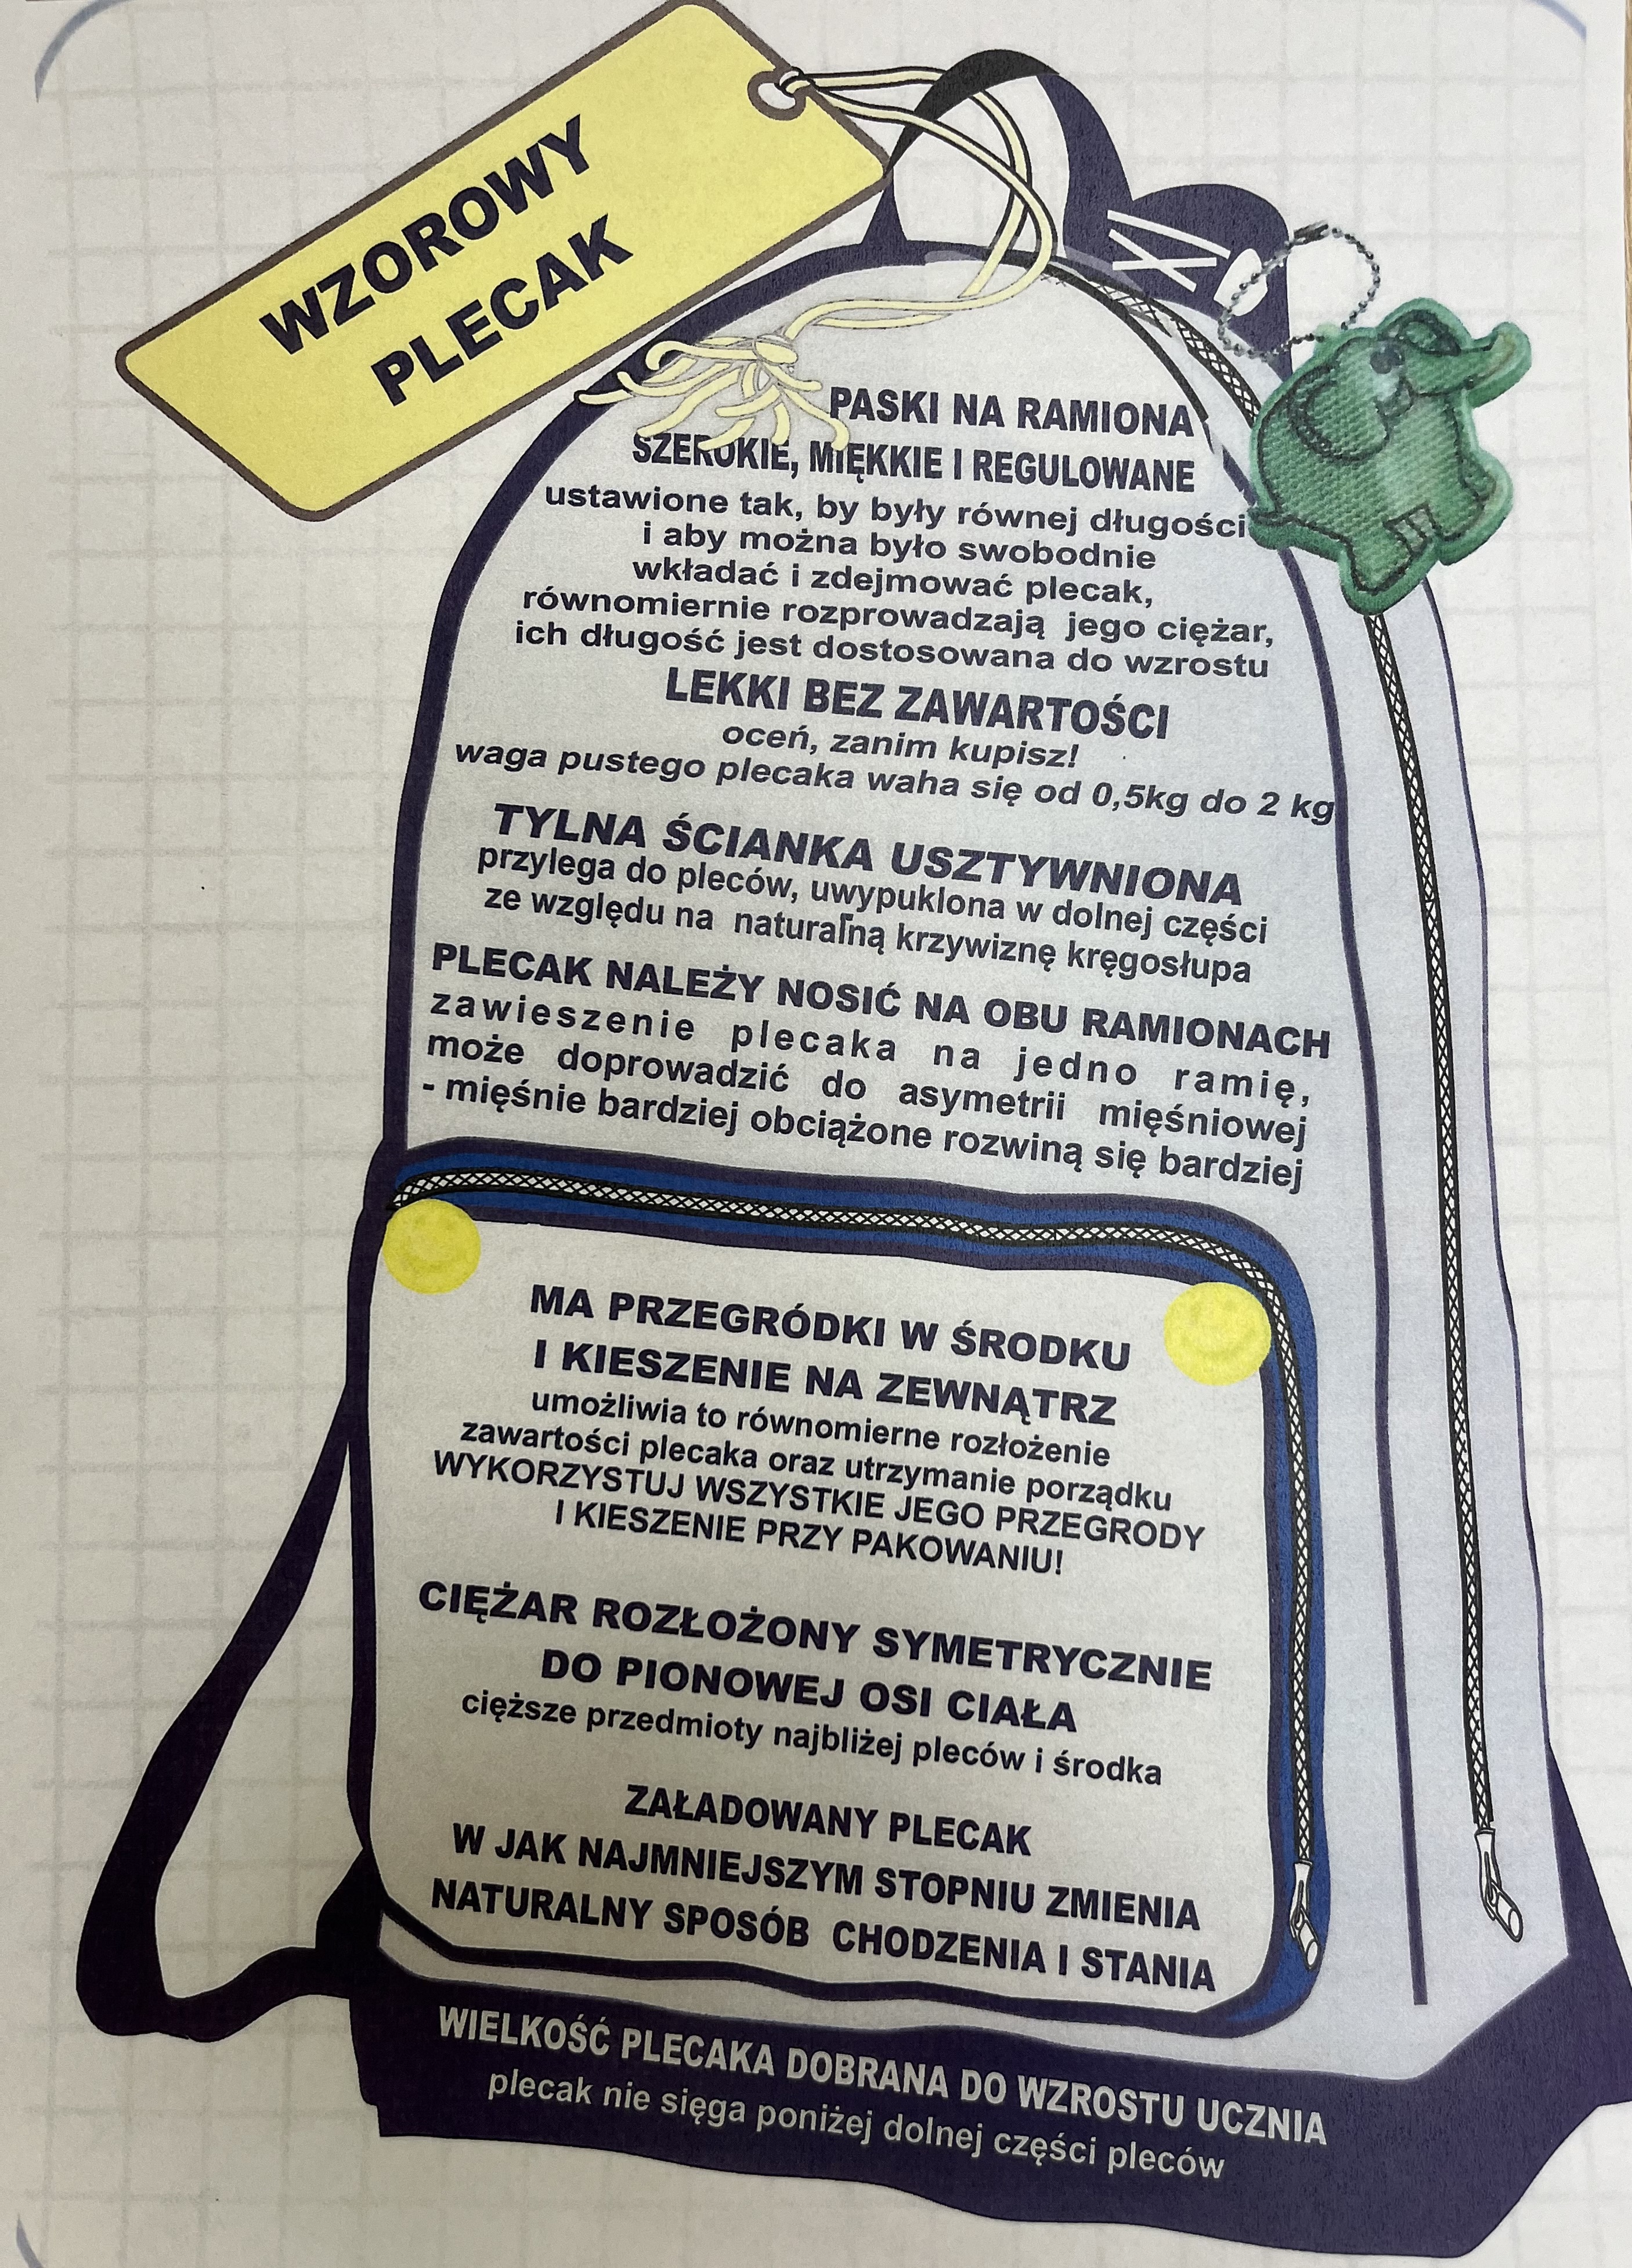 WZOROWY
PLECAK
PASKI NA RAMIONA
SZEROKIE, MIĘKKIE I REGULOWANE
ustawione tak, by były równej długości
i aby można było swobodnie
wkładać i zdejmować plecak,
równomiernie rozprowadzają jego ciężar,
ich długość jest dostosowana do wzrostu
LEKKI BEZ ZAWARTOŚCI
oceń, zanim kupisz!
waga pustego plecaka waha się od 0,5kg do 2 kg
TYLNA ŚCIANKA USZTYWNIONA
przylega do pleców, uwypuklona w dolnej części
ze względu na naturalną krzywiznę kręgosłupa
PLECAK NALEŻY NOSIĆ NA OBU RAMIONACH
zawieszenie plecaka na jedno ramię,
może doprowadzić do asymetrii mięśniowej
- mięśnie bardziej obciążone rozwiną się bardziej
MA PRZEGRÓDKI W ŚRODKU
I KIESZENIE NA ZEWNĄTRZ
umożliwia to równomierne rozłożenie
zawartości plecaka oraz utrzymanie porządku
WYKORZYSTUJ WSZYSTKIE JEGO PRZEGRODY
I KIESZENIE PRZY PAKOWANIU!
CIĘŻAR ROZŁOŻONY SYMETRYCZNIE
DO PIONOWEJ OSI CIAŁA
cięższe przedmioty najbliżej pleców i środka
ZAŁADOWANY PLECAK
W JAK NAJMNIEJSZYM STOPNIU ZMIENIA
NATURALNY SPOSÓB CHODZENIA I STANIA
WIELKOŚĆ PLECAKA DOBRANA DO WZROSTU UCZNIA
plecak nie sięga poniżej dolnej części pleców